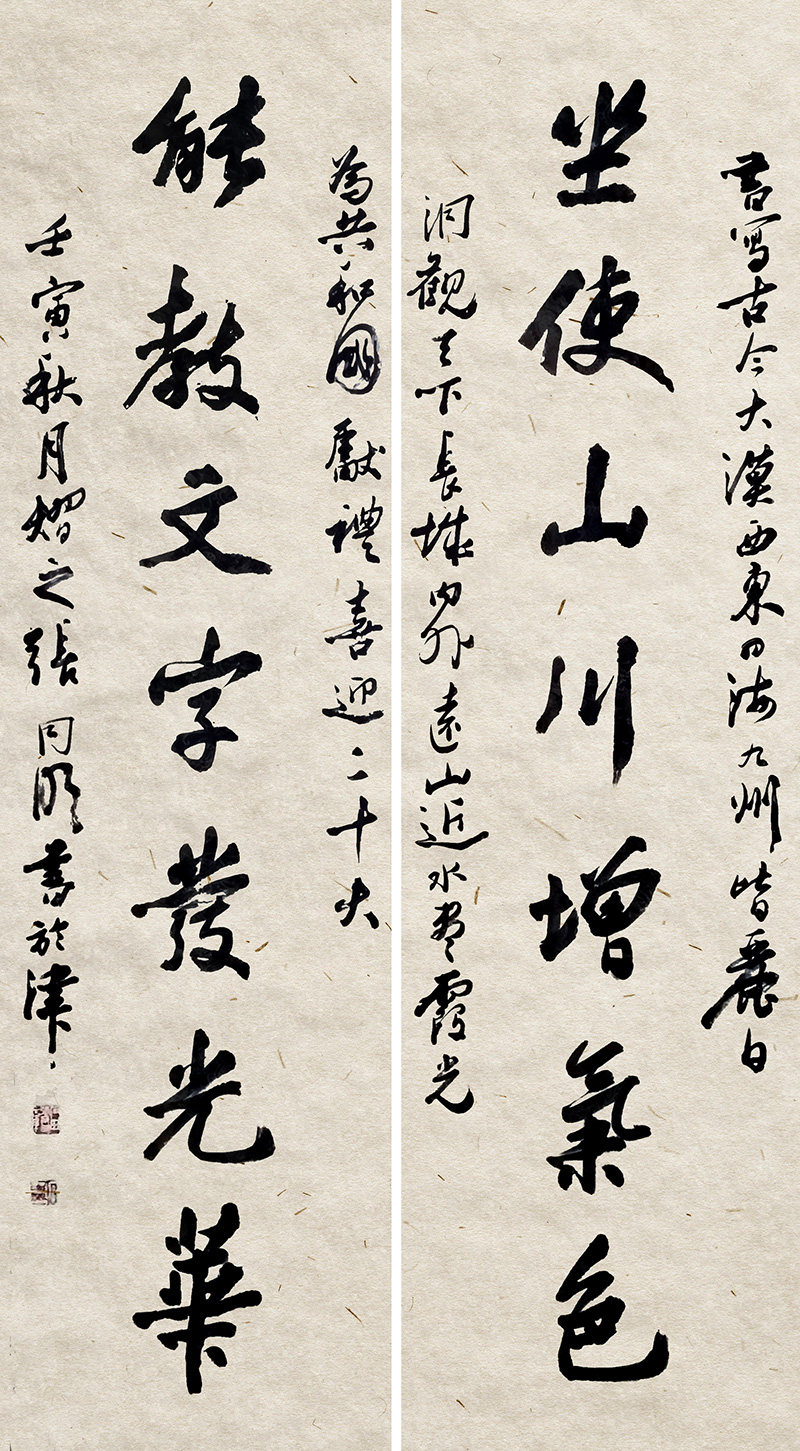 書寫古今大漠西東四海九州皆麗日
坐使山川增氣色
洞觀天下長城內外遠山近水盡霞光
為共和國獻禮喜迎二十大
能教文字發光華
壬寅秋月熠之張同明書於津